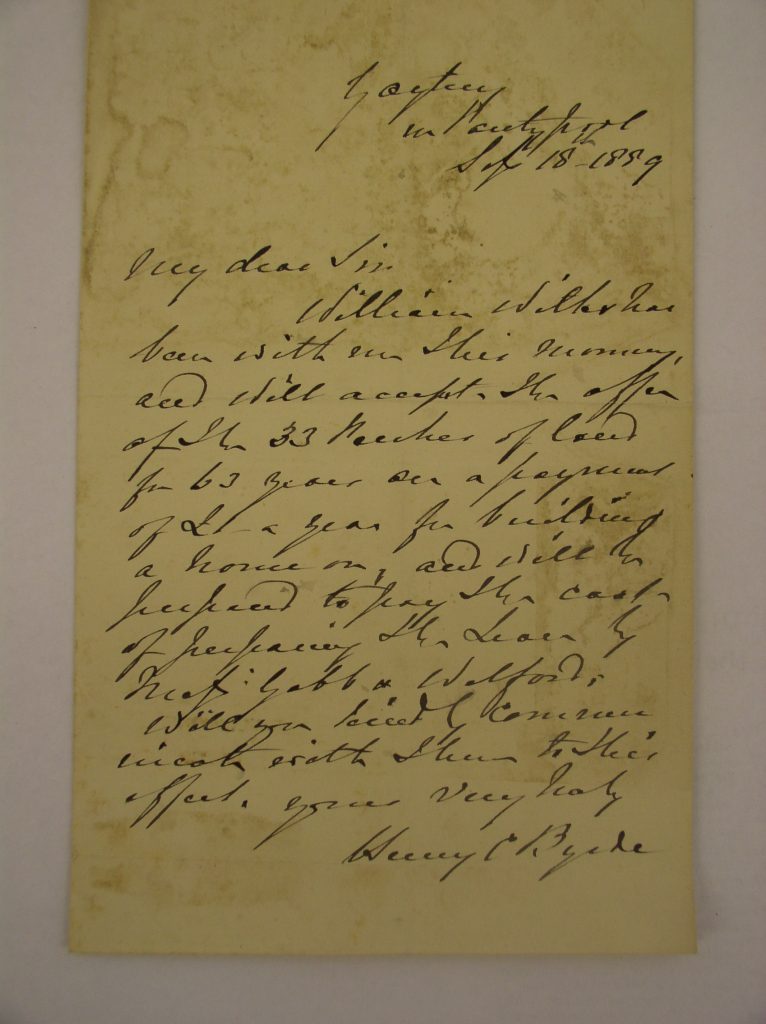 Goytrey
nr Pontypool
Sep 18th 1889
My dear Sir
William Wilks has
been with me this morning,
and will accept the offer
of the 33 Perches of land
for 63 years on a payment
of £1 - a year for building
a house on, and will be
prepared to pay the cost
of preparing the Lease by
Messrs: Gabb & Walford,
Will you kindly commu
nicate with them to this
effect. yours very truly
Henry C Byrde